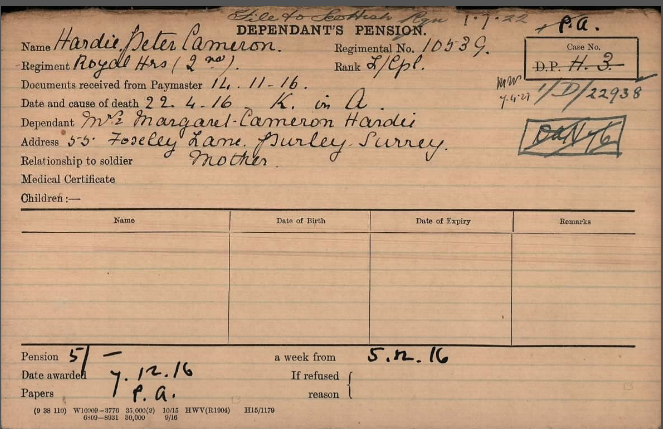 File to Scottish Rgn 1.7.22
DEPENDANT'S PENSION.
P.A.
Name Hardie, Peter Cameron.
Regimental No. 10539.
Case No.
D.P. H. 3
Regiment Royal Hrs (2nd).
Rank L/Cpl.
Documents received from Paymaster 14.11-16.
7.4.27
1/D/22938
Date and cause of death 22.4-16 K. in A.
Dependant Mrs Margaret Cameron Hardie
Address 55 Foxley Lane, Purley Surrey.
Relationship to soldier Mother.
Medical Certificate
Children:—
Name Date of Birth Date of Expiry Remarks
Pension 5/– a week from 5.12.16
Date awarded 7.12.16 If refused
Papers P.A. reason
(9 38 110) W10009—3776 35,000(2) 10/15 HWV(R1904) H15/1179
6809—8931 20,000 9/16